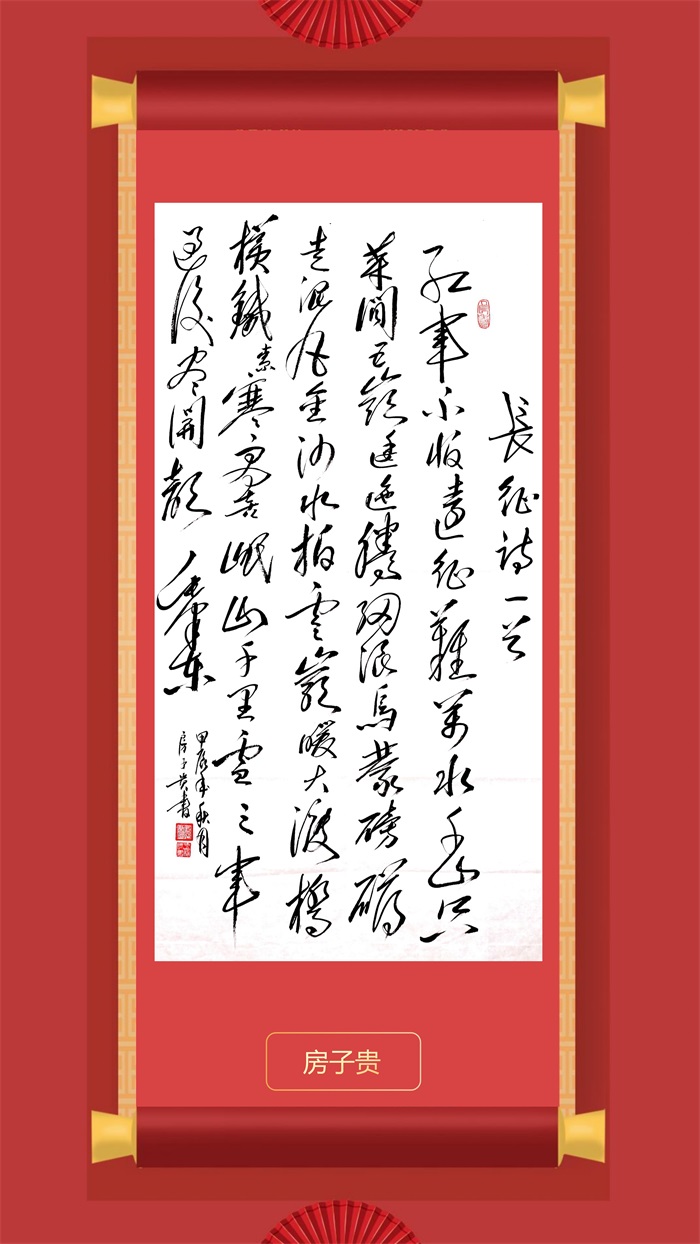 長征詩一首
紅軍不怕遠征難萬水千山只
等閒五嶺逶迤騰細浪烏蒙磅礴
走泥丸金沙水拍雲巖暖大渡橋
橫鐵索寒更喜岷山千里雪三軍
過後盡開顏 毛澤東
甲辰年秋月
房子贵書
房子贵